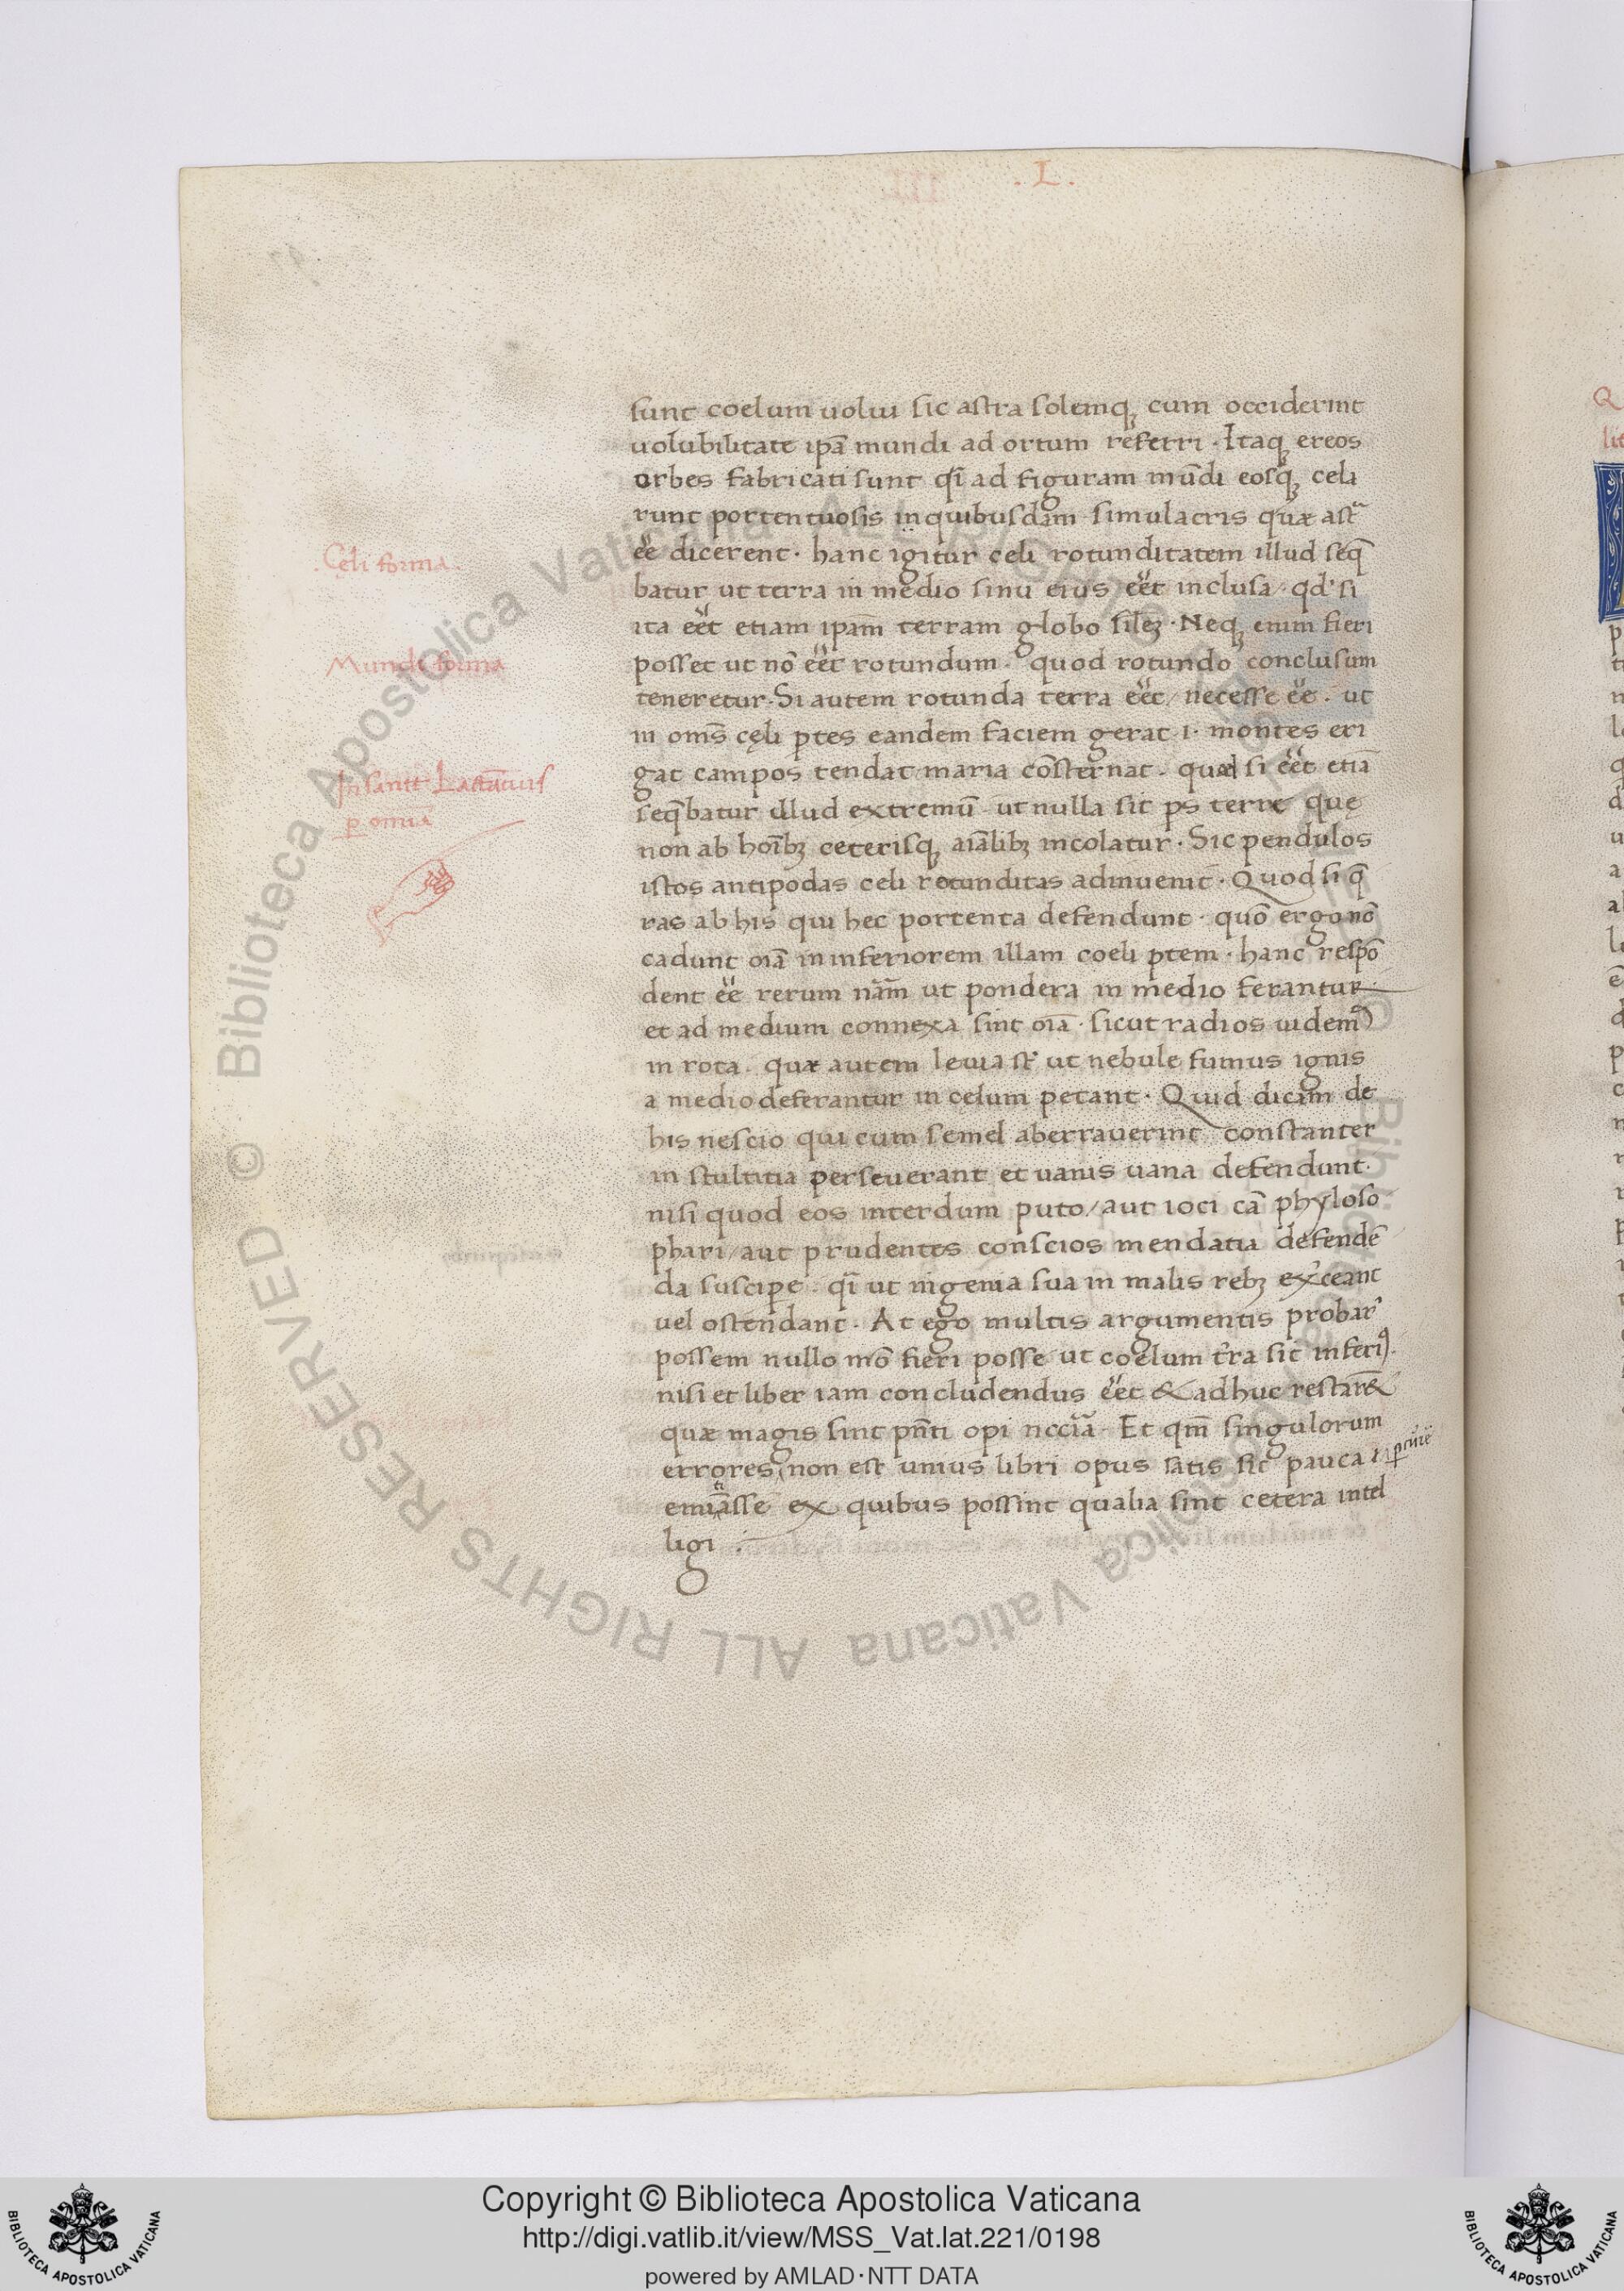 . L .
sunt coelum uolui sic astra solemq; cum occiderint
uolubilitate ipā mundi ad ortum referri · Itaq; ereos
orbes fabricati sunt q̄i ad figuram mūdi eosq; cela
runt portentuosis inquibusdam simulacris quæ ast̄
ēē dicerent · hanc igitur celi rotunditatem illud seq̄
batur ut terra in medio sinu eius eēt inclusa · qd' si
ita eēt etiam ipam̄ terram globo silez · Neq; enim fieri
posset ut nō eēt rotundum · quod rotundo conclusum
teneretur · Si autem rotunda terra eēt / necesse ēē · ut
in om̄s cęli ptes eandem faciem gerat · i · montes eri
gat campos tendat maria cōsternat · quod si eēt etiā
seq̄batur illud extremū ut nulla sit ps terre quę
non ab hoībz ceterisq; aīalibz incolatur · Sic pendulos
istos antipodas celi rotunditas adinuenit · Quod si q̄
ras ab his qui hec portenta defendunt · quō ergo nō
cadunt oīa in inferiorem illam coeli ptem · hanc respō
dent ēē rerum nām ut pondera in medio ferantur ·
et ad medium connexa sint oīa · sicut radios uidem9
in rota · quæ autem leuia st̄ ut nebule fumus ignis
a medio deferantur in celum petant · Quid dicam de
his nescio qui cum semel aberrauerint constanter
in stultitia perseuerant et uanis uana defendunt ·
nisi quod eos interdum puto / aut ioci cā phyloso
phari / aut prudentes conscios mendatia defendē
da suscipe · q̄i ut ingenia sua in malis rebz ex'ceant
uel ostendant · At ego multis argumentis probar'
possem nullo mō fieri posse ut coelum t'ra sit inferi9 ·
nisi et liber iam concludendus eēt & adhuc restar&
quæ magis sint pn̄ti opi nccīa · Et qm̄ singulorum
errores non est unius libri opus satis sit pauca
ex quibus possint qualia sint cetera intel
ligi ·
. Cęli forma .
Mundi forma
Insanit Lactātius
p omia
Copyright © Biblioteca Apostolica Vaticana
http://digi.vatlib.it/view/MSS_Vat.lat.221/0198
powered by AMLAD·NTT DATA
BIBLIOTECA APOSTOLICA VATICANA
BIBLIOTECA APOSTOLICA VATICANA
© Biblioteca Apostolica Vaticana ALL RIGHTS RESERVED